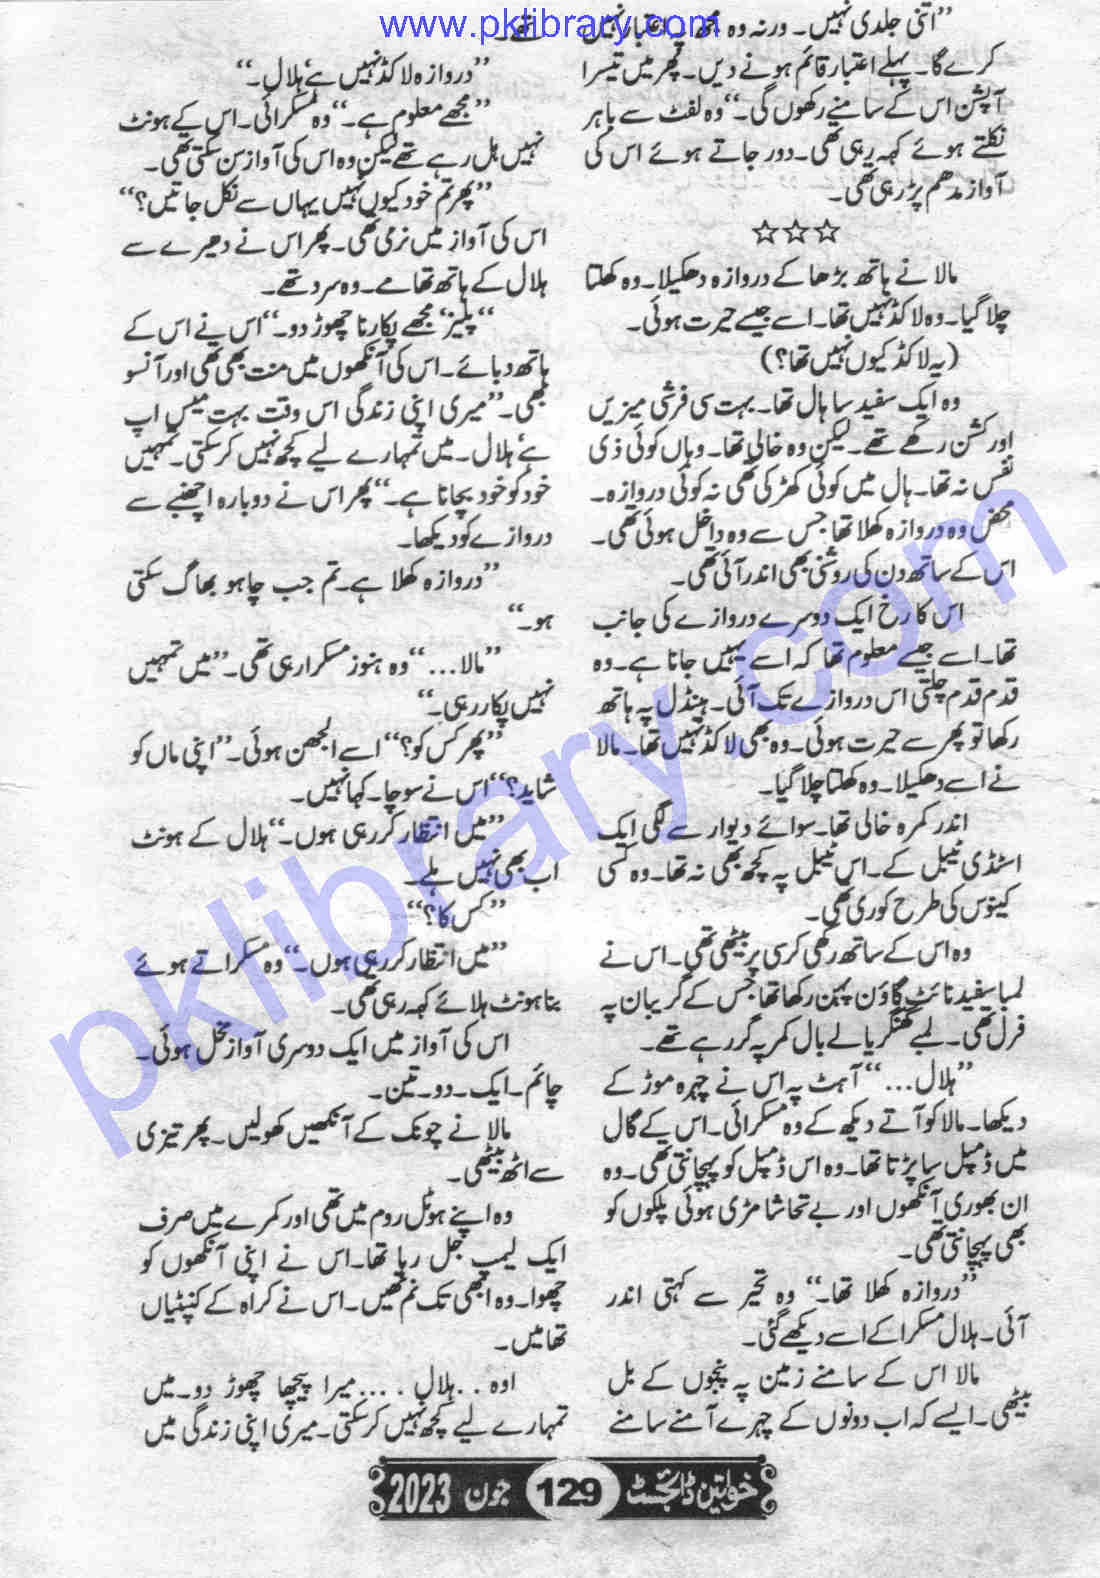 www.pklibrary.com
”اتنی جلدی نہیں۔ ورنہ وہ مجھ پہ اعتبار نہیں
کرے گا۔ پہلے اعتبار قائم ہونے دیں۔ پھر میں تیسرا
آپشن اس کے سامنے رکھوں گی۔“ وہ لفٹ سے باہر
نکلتے ہوئے کہہ رہی تھی۔ دور جاتے ہوئے اس کی
آواز مدھم پڑ رہی تھی۔
☆☆☆
مالا نے ہاتھ بڑھا کے دروازہ دھکیلا۔ وہ کھلتا
چلا گیا۔ وہ لاکڈ نہیں تھا۔ اسے جیسے حیرت ہوئی۔
(یہ لاکڈ کیوں نہیں تھا؟)
وہ ایک سفید سا ہال تھا۔ بہت سی فرشی میزیں
اور کشن رکھے تھے۔ لیکن وہ خالی تھا۔ وہاں کوئی ذی
نفس نہ تھا۔ ہال میں کوئی کھڑکی تھی نہ کوئی دروازہ۔
محض وہ دروازہ کھلا تھا جس سے وہ داخل ہوئی تھی۔
اس کے ساتھ دن کی روشنی بھی اندر آئی تھی۔
اس کا رخ ایک دوسرے دروازے کی جانب
تھا۔ اسے جیسے معلوم تھا کہ اسے یہیں جانا ہے۔ وہ
قدم قدم چلتی اس دروازے تک آئی۔ ہینڈل پہ ہاتھ
رکھا تو پھر سے حیرت ہوئی۔ وہ بھی لاکڈ نہیں تھا۔ مالا
نے اسے دھکیلا۔ وہ کھلتا چلا گیا۔
اندر کمرہ خالی تھا۔ سوائے دیوار سے لگی ایک
اسٹڈی ٹیبل کے۔ اس ٹیبل پہ کچھ بھی نہ تھا۔ وہ کسی
کینوس کی طرح کوری تھی۔
وہ اس کے ساتھ رکھی کرسی پر بیٹھی تھی۔ اس نے
لمبا سفید نائٹ گاؤن پہن رکھا تھا جس کے گریبان پہ
فرل تھی۔ لمبے گھنگریالے بال کمر پہ گر رہے تھے۔
”ہلال...“ آہٹ پہ اس نے چہرہ موڑ کے
دیکھا۔ مالا کو آتے دیکھ کے وہ مسکرائی۔ اس کے گال
میں ڈمپل سا پڑتا تھا۔ وہ اس ڈمپل کو پہچانتی تھی۔ وہ
ان بھوری آنکھوں اور بے تحاشا مڑی ہوئی پلکوں کو
بھی پہچانتی تھی۔
”دروازہ کھلا تھا۔“ وہ تحیر سے کہتی اندر
آئی۔ ہلال مسکرا کے اسے دیکھے گئی۔
مالا اس کے سامنے زمین پہ پنجوں کے بل
بیٹھی۔ ایسے کہ اب دونوں کے چہرے آمنے سامنے
تھے۔
”دروازہ لاکڈ نہیں ہے ہلال۔“
”مجھے معلوم ہے۔“ وہ مسکرائی۔ اس کے ہونٹ
نہیں ہل رہے تھے لیکن وہ اس کی آواز سن سکتی تھی۔
”پھر تم خود کیوں نہیں یہاں سے نکل جاتیں؟“
اس کی آواز میں نرمی تھی۔ پھر اس نے دھیرے سے
ہلال کے ہاتھ تھامے۔ وہ سرد تھے۔
”پلیز‘ مجھے پکارنا چھوڑ دو۔“ اس نے اس کے
ہاتھ دبائے۔ اس کی آنکھوں میں منت بھی تھی اور آنسو
بھی۔ ”میری اپنی زندگی اس وقت بہت میس اپ
ہے‘ ہلال۔ میں تمہارے لیے کچھ نہیں کر سکتی۔ تمہیں
خود کو خود بچانا ہے۔“ پھر اس نے دوبارہ اچنبھے سے
دروازے کو دیکھا۔
”دروازہ کھلا ہے۔ تم جب چاہو بھاگ سکتی
ہو۔“
”مالا...“ وہ ہنوز مسکرا رہی تھی۔ ”میں تمہیں
نہیں پکار رہی۔“
”پھر کس کو؟“ اسے الجھن ہوئی۔ ”اپنی ماں کو
شاید؟“ اس نے سوچا۔ کہا نہیں۔
”میں انتظار کر رہی ہوں۔“ ہلال کے ہونٹ
اب بھی نہیں ہلے۔
”کس کا؟“
”میں انتظار کر رہی ہوں۔“ وہ مسکراتے ہوئے
بنا ہونٹ ہلائے کہہ رہی تھی۔
اس کی آواز میں ایک دوسری آواز مخل ہوئی۔
چائم۔ ایک۔ دو۔ تین۔
مالا نے چونک کے آنکھیں کھولیں۔ پھر تیزی
سے اٹھ بیٹھی۔
وہ اپنے ہوٹل روم میں تھی اور کمرے میں صرف
ایک لیمپ جل رہا تھا۔ اس نے اپنی آنکھوں کو
چھوا۔ وہ ابھی تک نم تھیں۔ اس نے کراہ کے کنپٹیاں
تھامیں۔
اوہ.. ہلال.... میرا پیچھا چھوڑ دو۔ میں
تمہارے لیے کچھ نہیں کر سکتی۔ میری اپنی زندگی میں
خواتین ڈائجسٹ 129 جون 2023
pklibrary.com